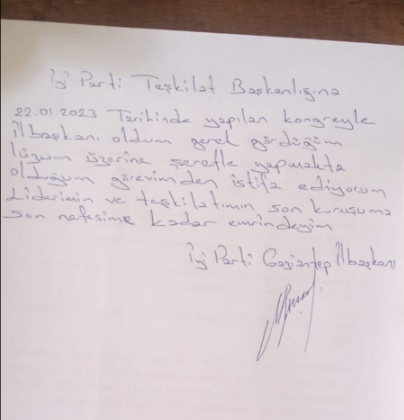 İyi Parti Teşkilat Başkanlığına
22.01.2023 Tarihinde yapılan kongreyle
ilbaşkanı oldum gerel gördüğüm
lüzum üzerine şerefle yapmakta
olduğum görevimden istifa ediyorum
Liderimin ve teşkilatımın son kuruşuma
son nefesime kadar emrindeyim
İyi Parti Gaziantep İlbaşkanı